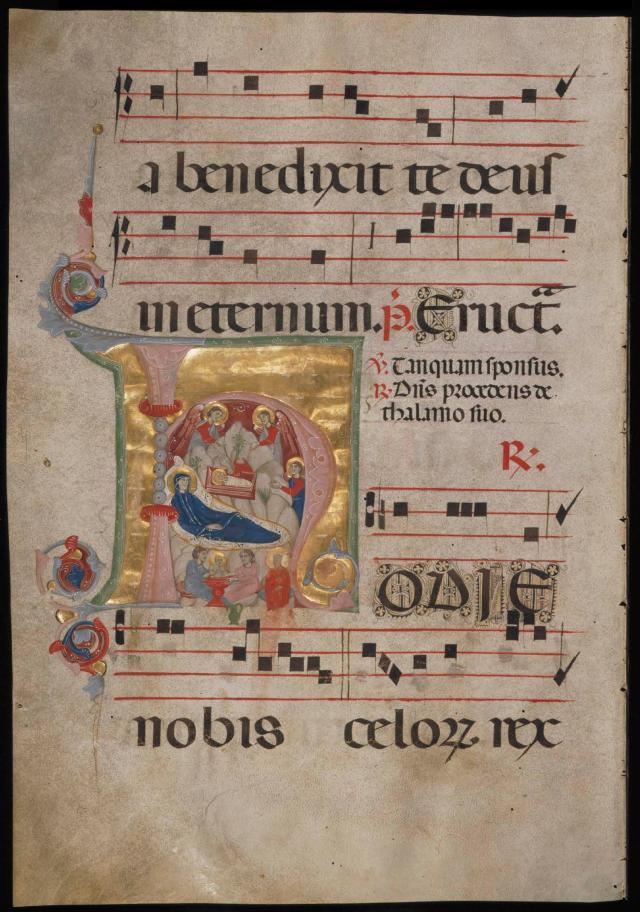 a benedixit te deus
in eternum. p̃. Eruct̃.
V. Tanquam sponsus.
R. Dn̄s procedens de
thalamo suo.
R.
HODIE
nobis celoꝝ rex